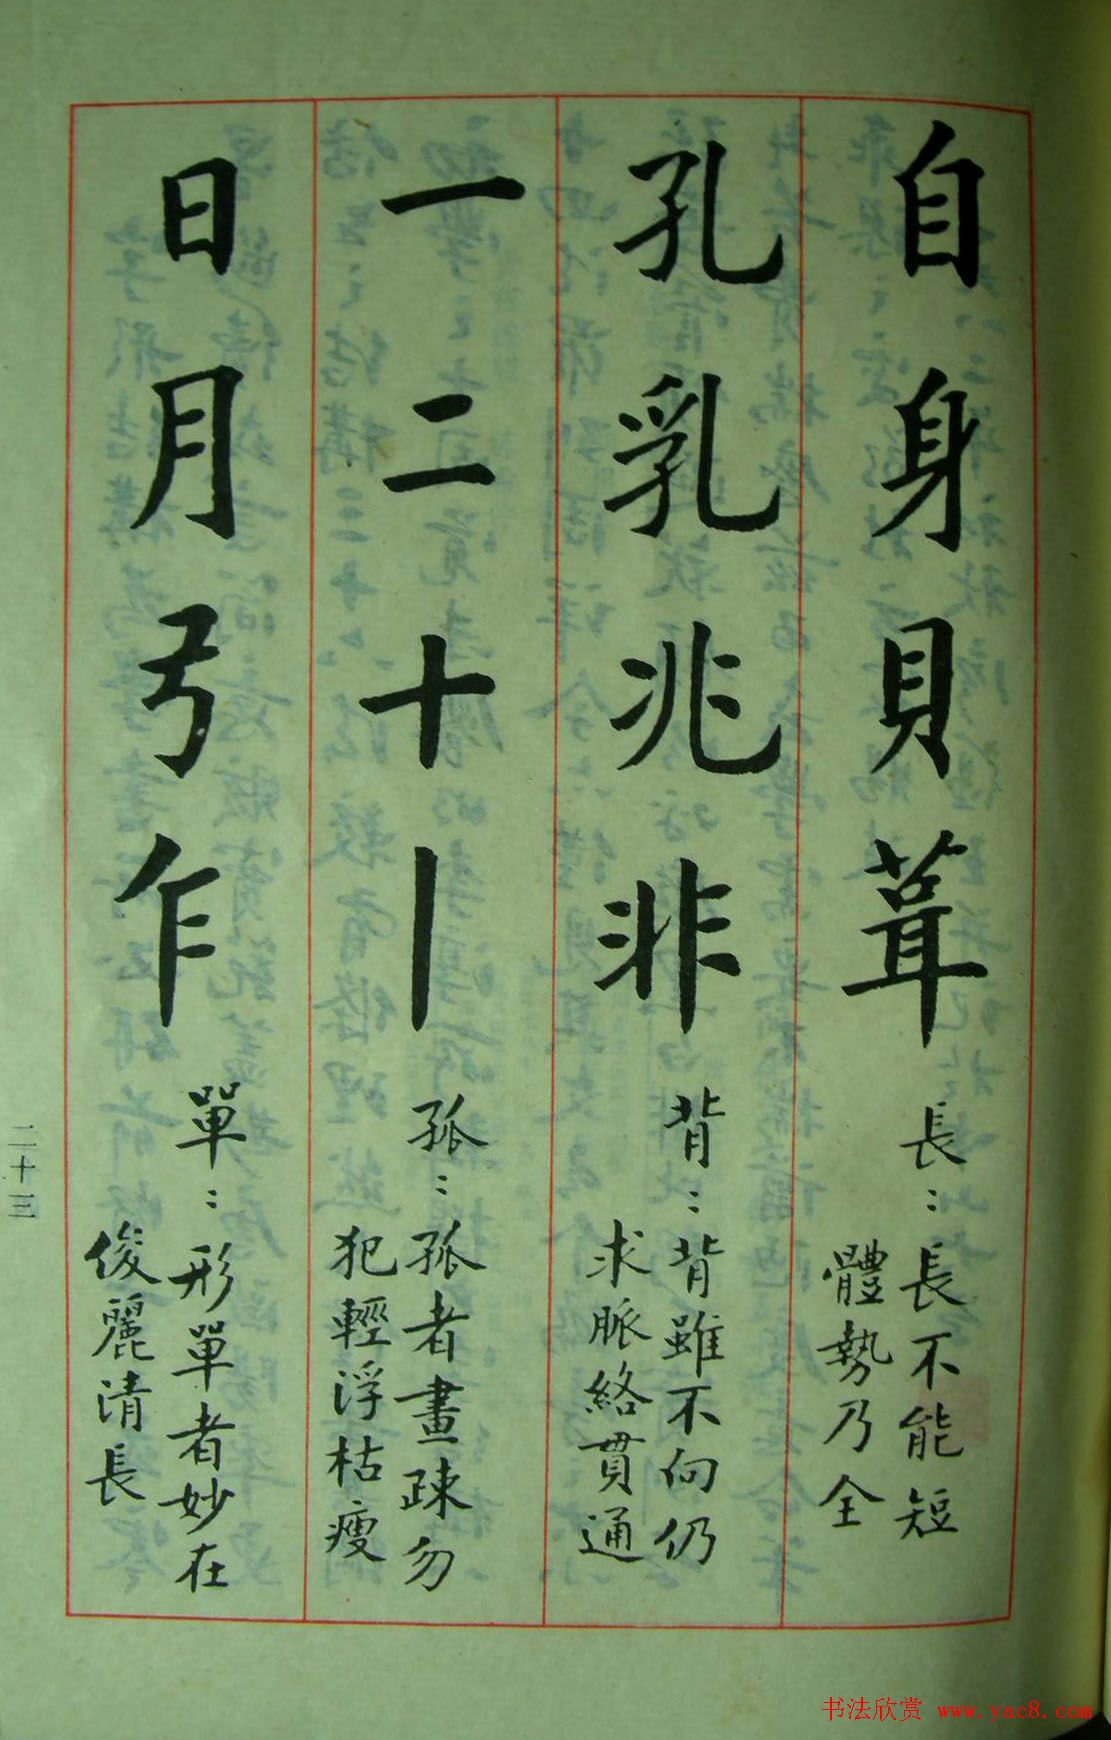 自身貝葺
長：長不能短
體勢乃全
孔乳兆非
背：背雖不向仍
求脈絡貫通
一二十丨
孤：孤者畫疎勿
犯輕浮枯瘦
日月弓乍
單：形單者妙在
俊麗清長
二十三
书法欣赏 www.yac8.com